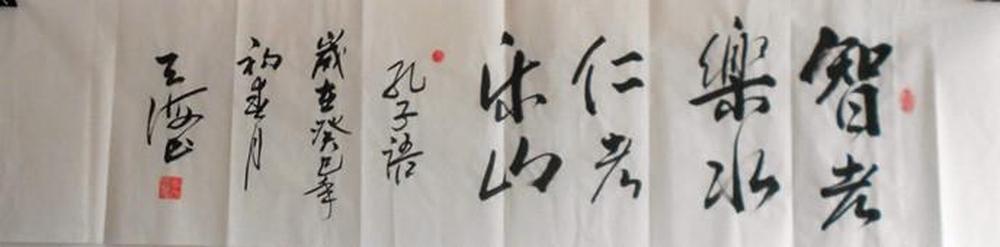 智者
樂水
仁者
乐山
孔子語
歲在癸巳年
初春月
王海